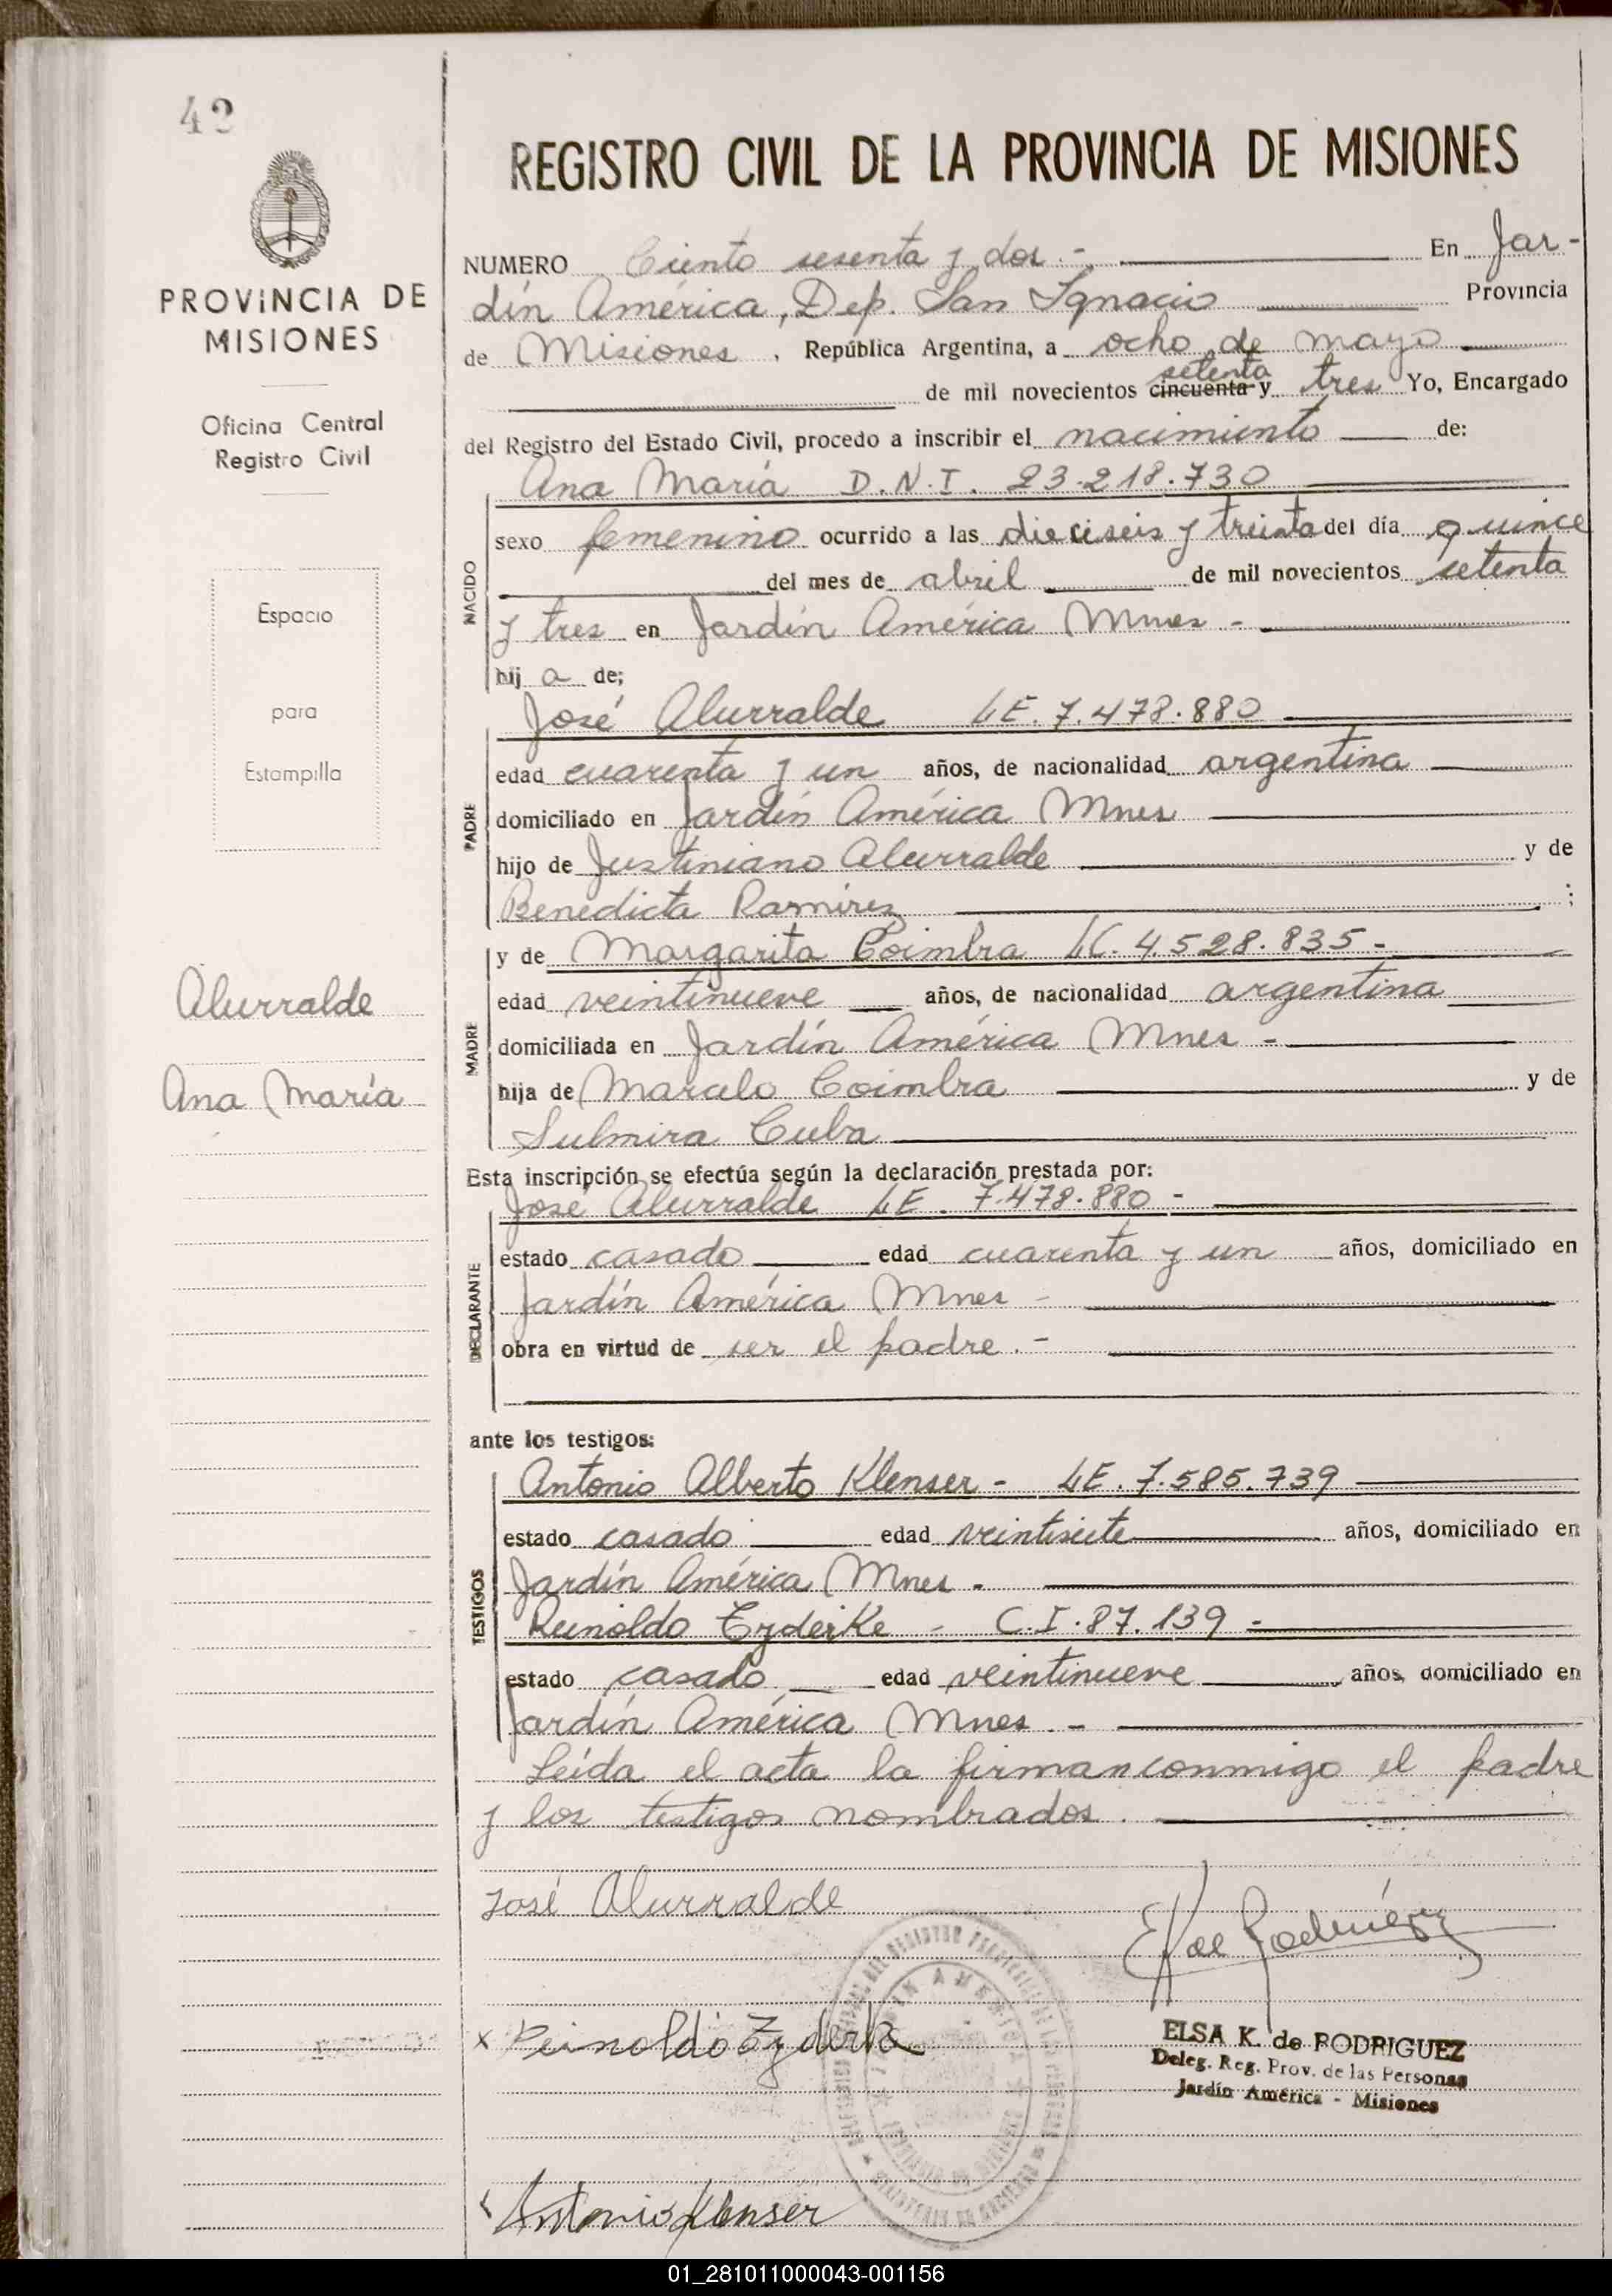 42
PROVINCIA DE
MISIONES
Oficina Central
Registro Civil
Espacio
para
Estampilla
Alurralde
Ana María
REGISTRO CIVIL DE LA PROVINCIA DE MISIONES
NUMERO Ciento sesenta y dos.- En Jar-
dín América, Dep. San Ignacio Provincia
de Misiones , República Argentina, a ocho de mayo
setenta
de mil novecientos cincuenta y tres Yo, Encargado
del Registro del Estado Civil, procedo a inscribir el nacimiento de:
NACIDO
Ana María D.N.I. 23.218.730
sexo femenino ocurrido a las dieciseis y treinta del día quince
del mes de abril de mil novecientos setenta
y tres en Jardín América Mnes -
hij a de;
PADRE
José Alurralde LE. 7.478.880
edad cuarenta y un años, de nacionalidad argentina
domiciliado en Jardín América Mnes
hijo de Justiniano Alurralde y de
Benedicta Ramirez ;
MADRE
y de Margarita Coimbra LC. 4.528.835-
edad veintinueve años, de nacionalidad argentina
domiciliada en Jardín América Mnes -
hija de Marcelo Coimbra y de
Sulmira Cuba
Esta inscripción se efectúa según la declaración prestada por:
DECLARANTE
José Alurralde LE. 7.478.880 -
estado casado edad cuarenta y un años, domiciliado en
Jardín América Mnes -
obra en virtud de ser el padre.-
ante los testigos:
TESTIGOS
Antonio Alberto Klenser - LE. 7.585.739
estado casado edad veintisiete años, domiciliado en
Jardín América Mnes.
Reinoldo Czderke - C.I. 87.139 -
estado casado edad veintinueve años, domiciliado en
Jardín América Mnes. -
Leída el acta la firman conmigo el padre
y los testigos nombrados.
José Alurralde
E K de Rodríguez
x Reinoldo
ELSA K. de RODRIGUEZ
Deleg. Reg. Prov. de las Personas
Jardín América - Misiones
Antonio Klenser
01_281011000043-001156